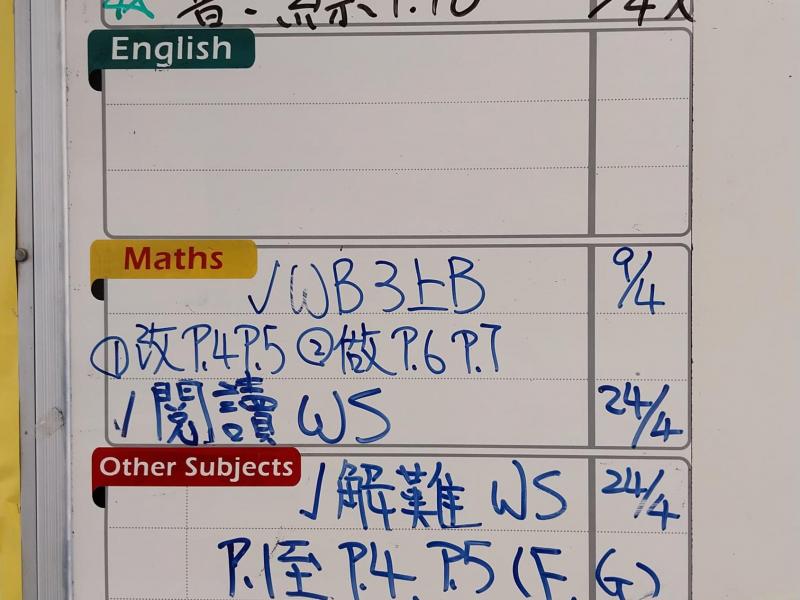 English
Maths
√WB3上B 9/4
①改P.4P.5 ②做P.6 P.7
√閱讀 WS 24/4
Other Subjects
√解難 WS 24/4
P.1至 P.4. P.5 (F. G)